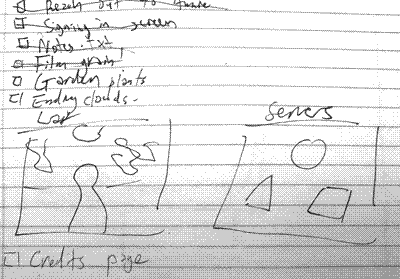 Reach out to
Signing in screen
Notes.txt
Film grain
Garden plants
Ending clouds.
Servers
Credits page